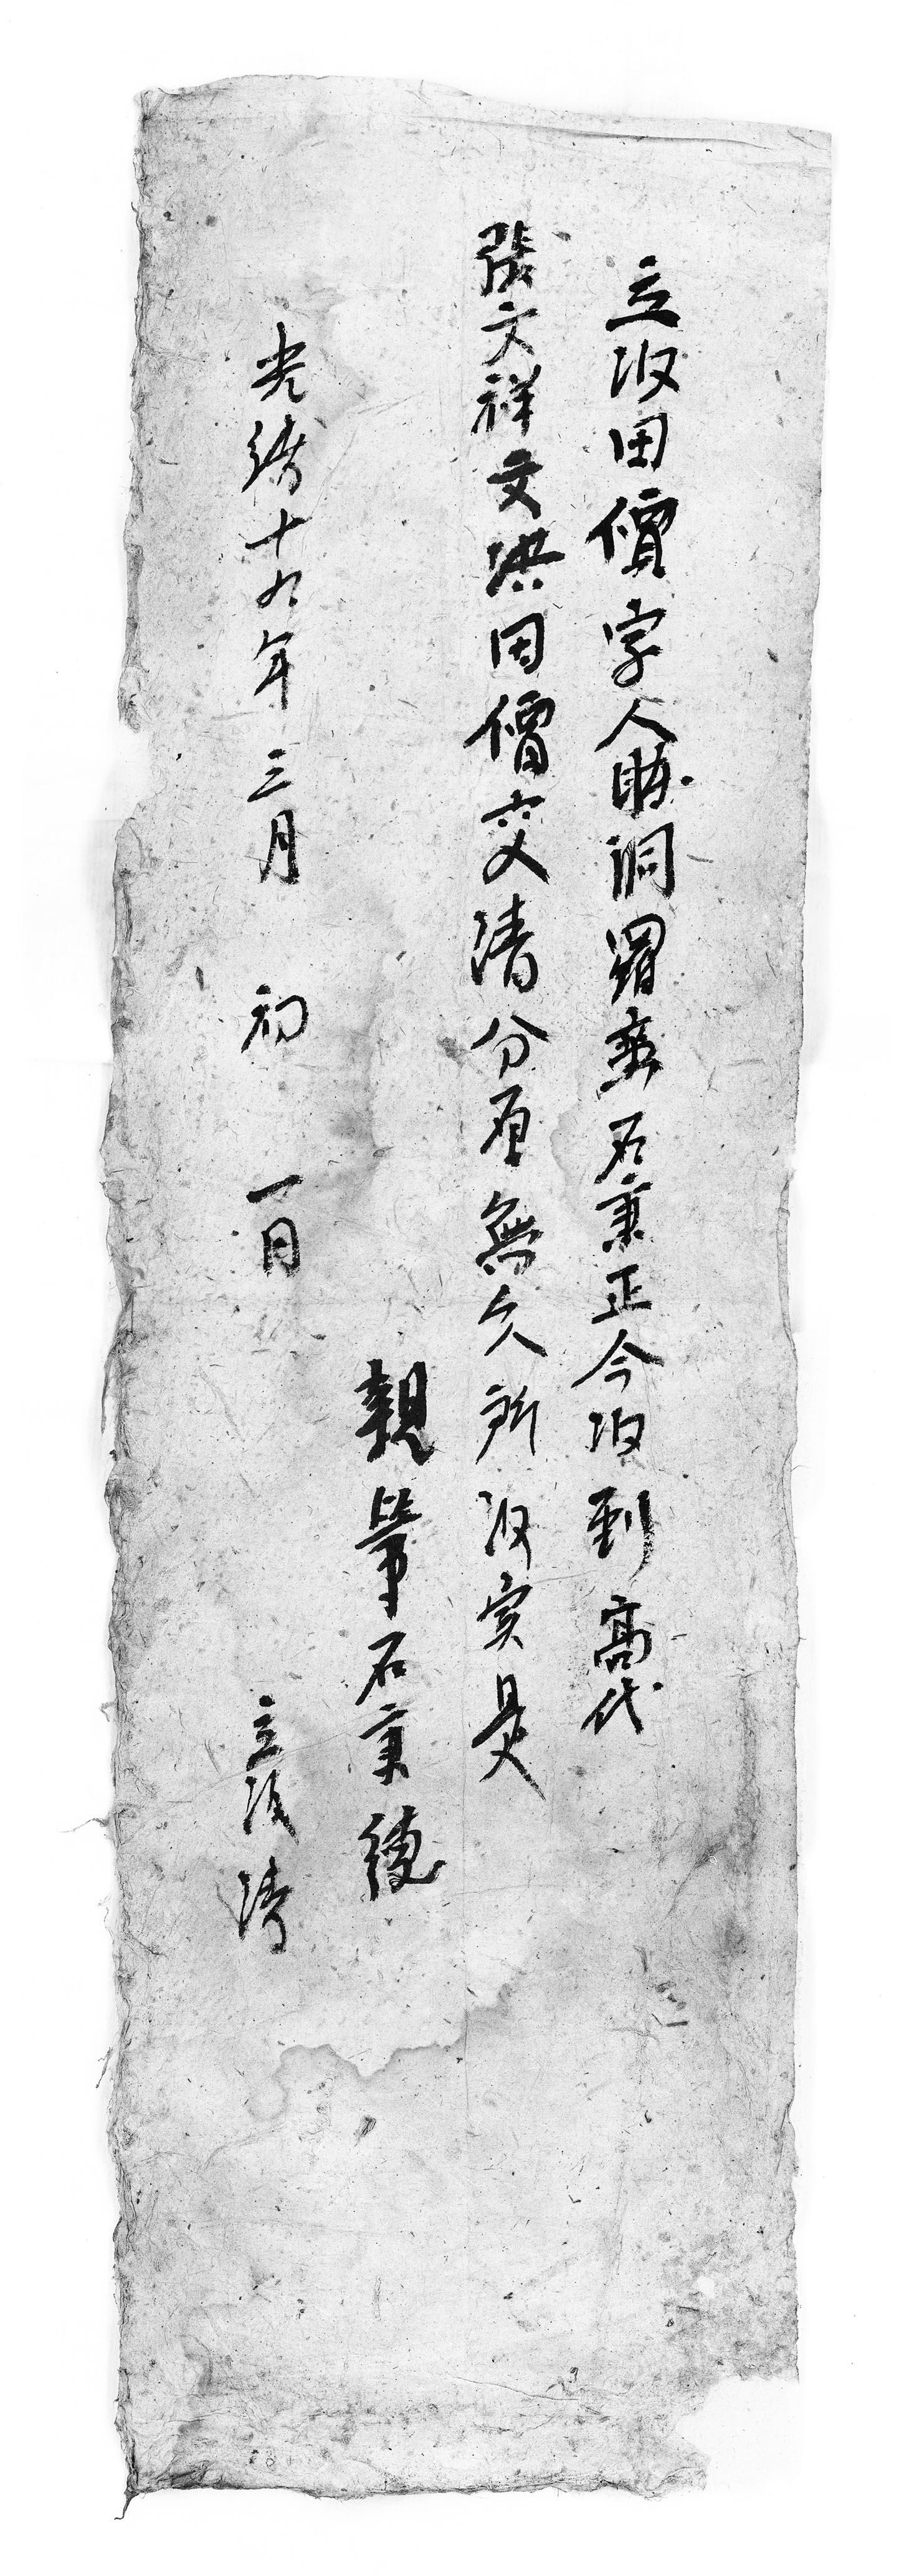 立收田價字人勝洞羅蛮石秉正今收到高代
張文祥文洪田價交清分厘無欠所收实是
親筆石秉德
光緒十九年三月初一日立收清